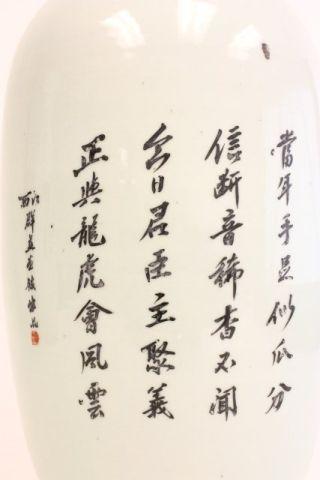 當年手足似瓜分
信斷音稀杳不聞
今日君臣主聚義
正與龍虎會風雲